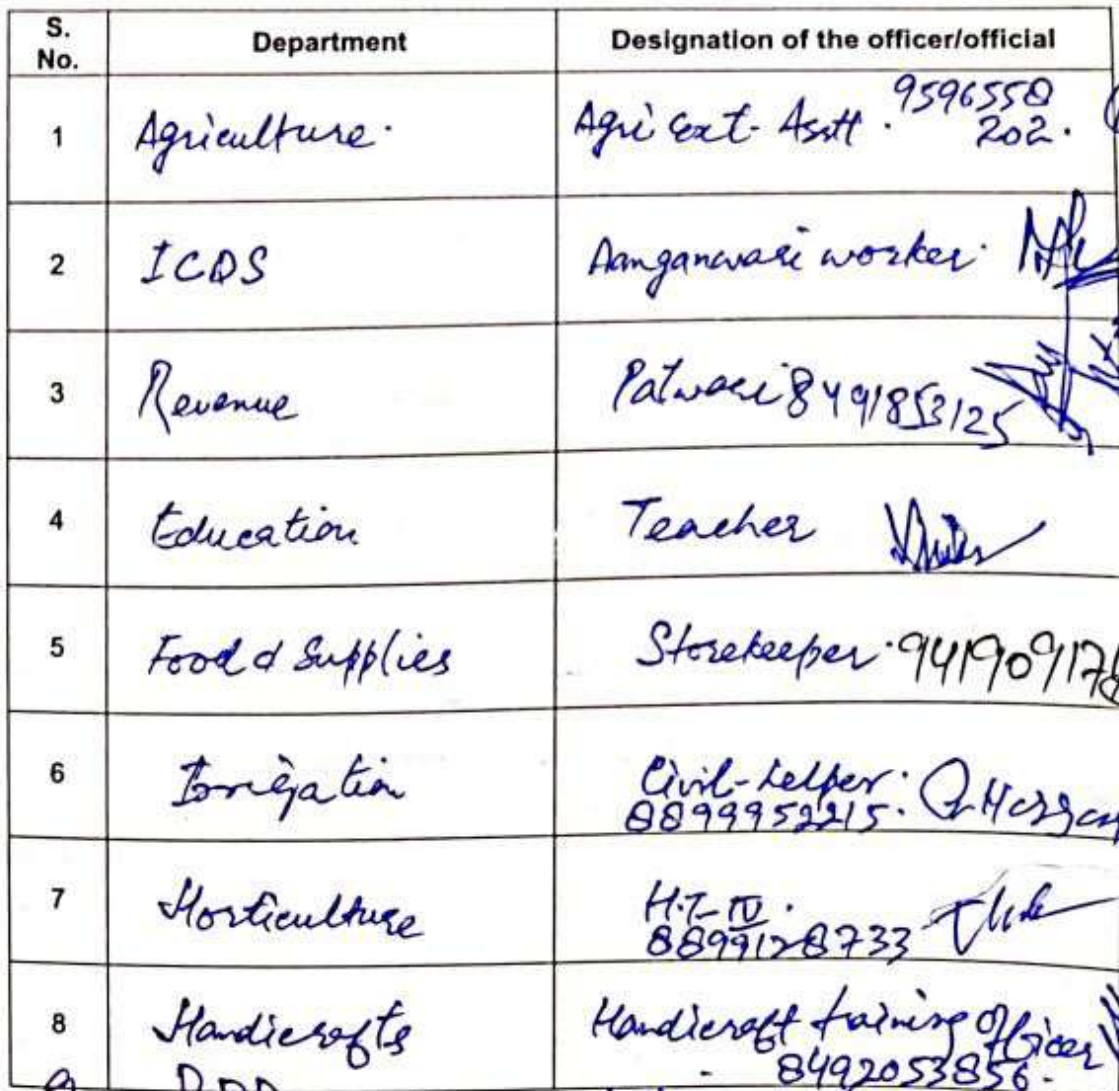 S. No. Department Designation of the officer/official
1 Agriculture. Agri Ext. Asstt. 9596558
202.
2 ICDS Aanganwari worker.
3 Revenue Patwari 8491853125
4 Education Teacher
5 Food & Supplies Storekeeper. 941909178
6 Irrigation Civil-helper.
8899952215.
7 Horticulture H.T-IV.
8899128733
8 Handicrafts Handicraft training Officer
8492053856.